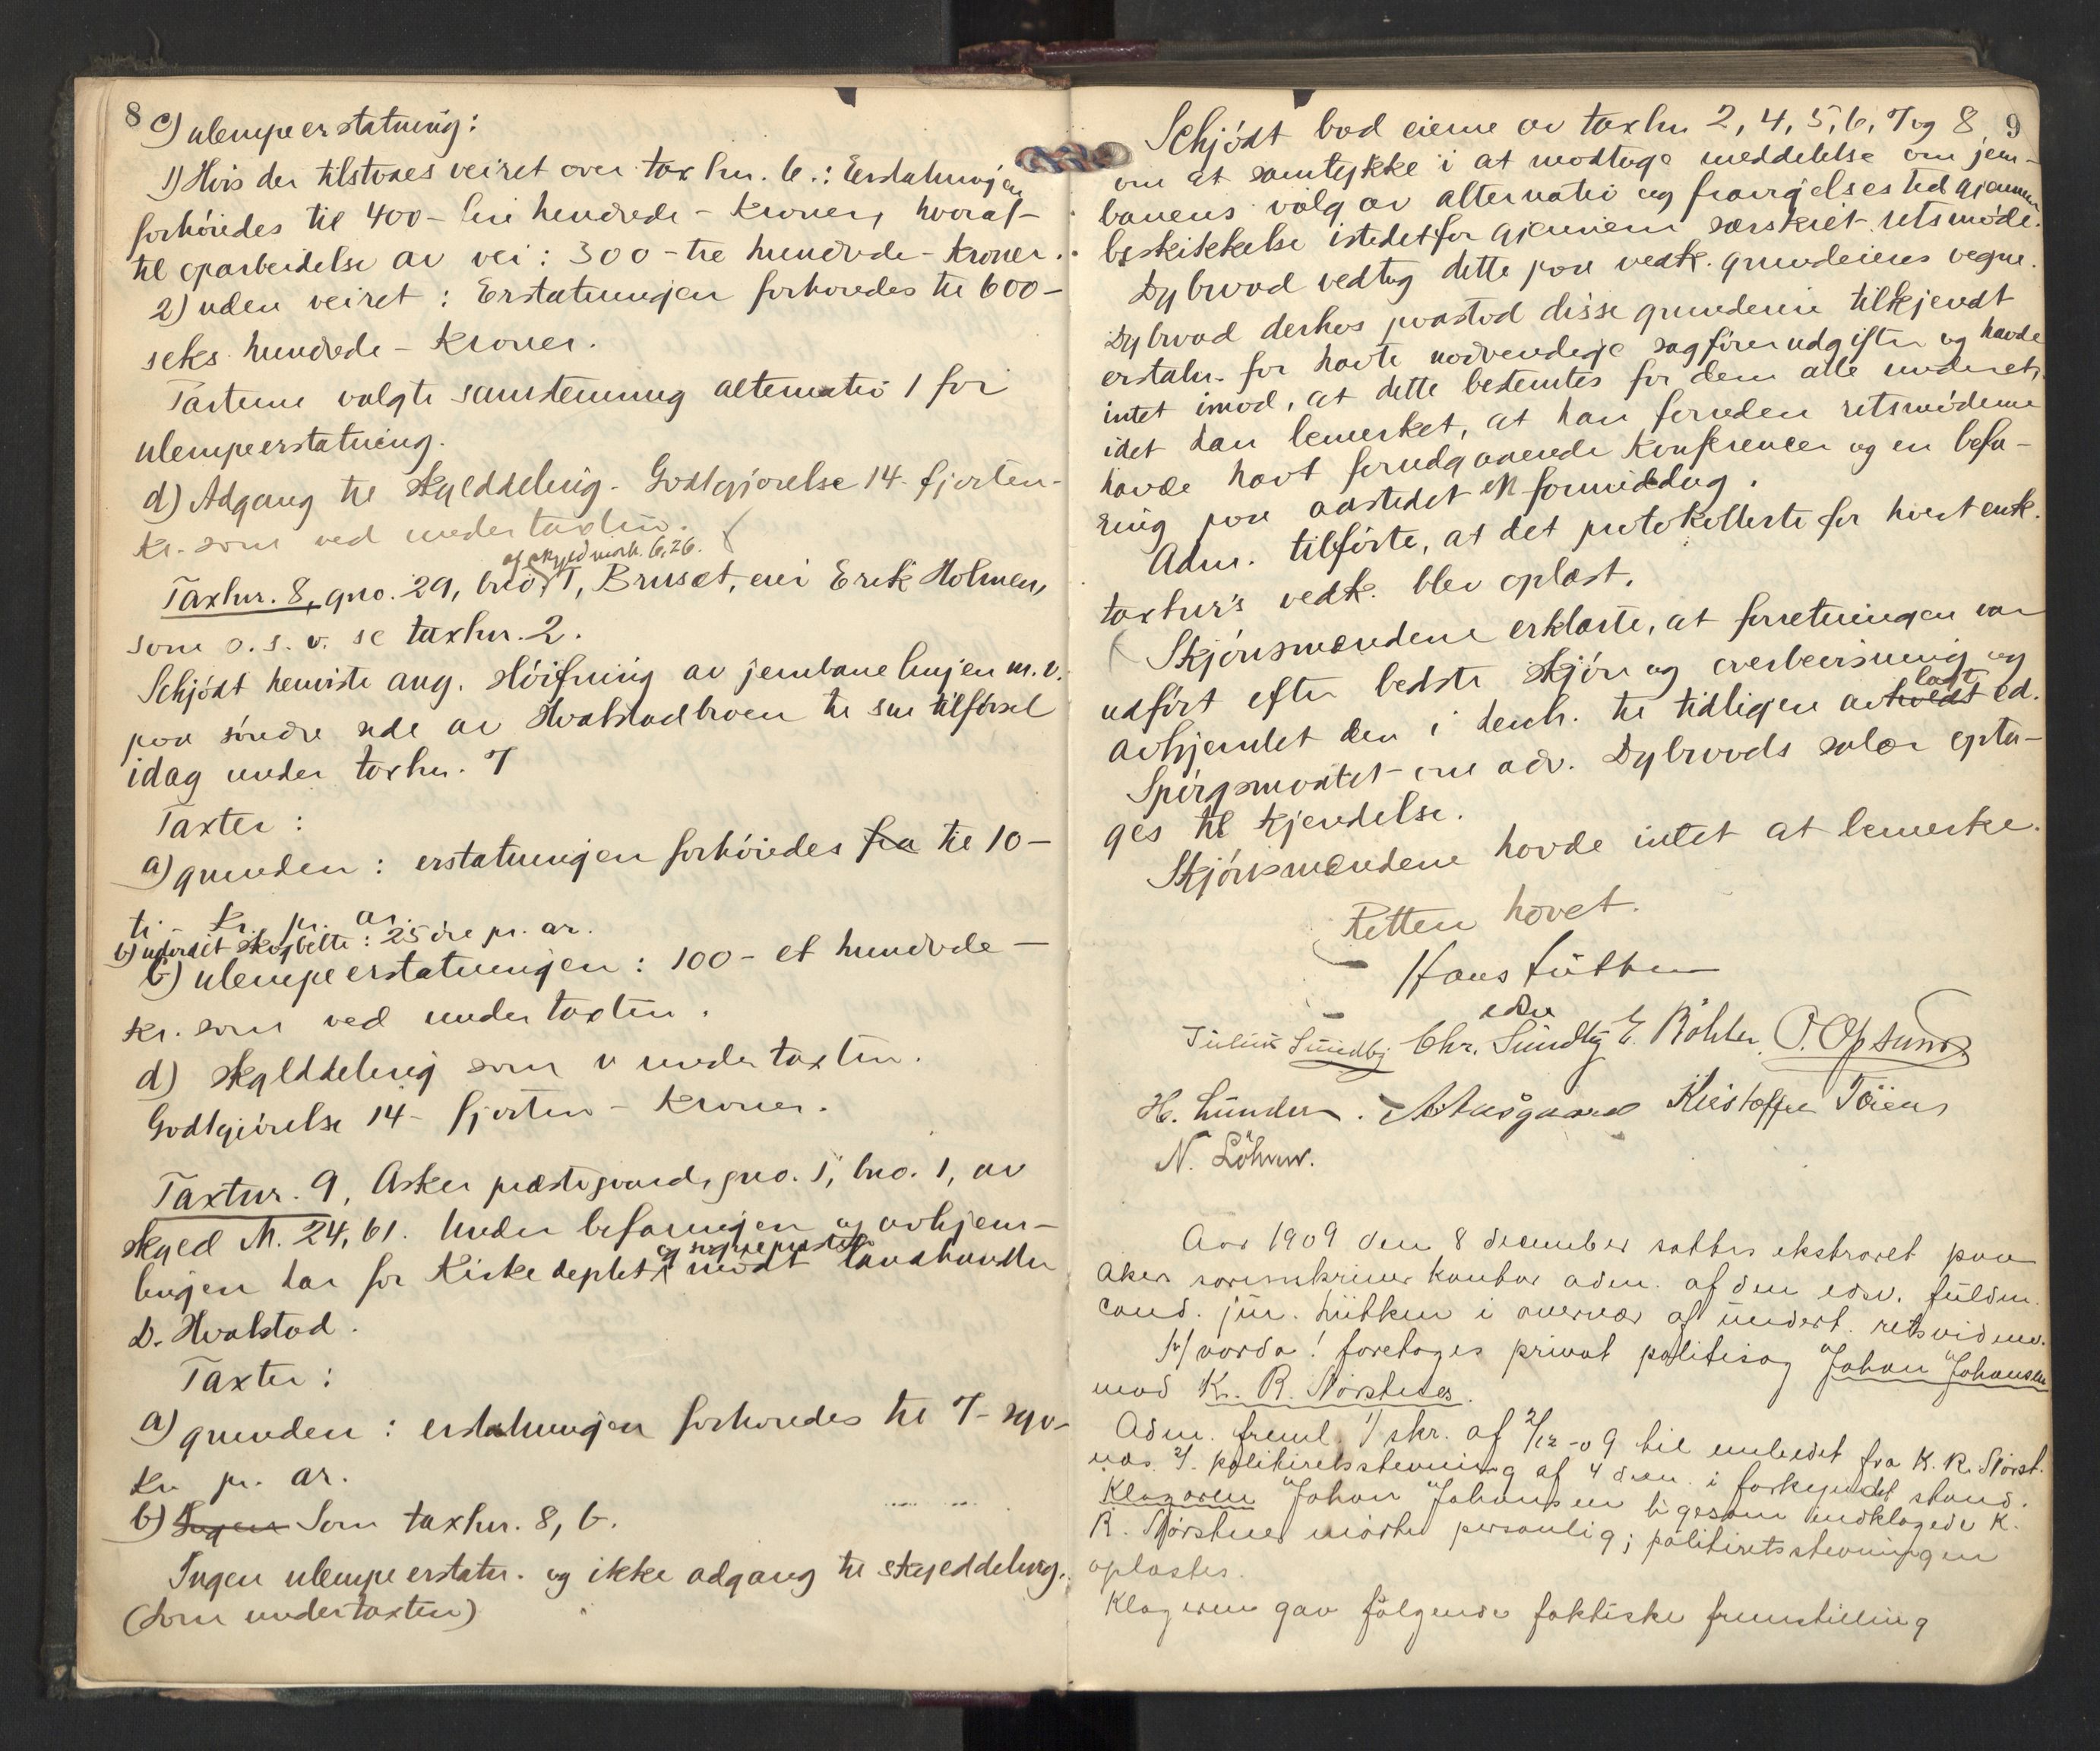 8
c) ulempeerstatning:
1) Hvis der tilstaaes veiret over taxtnr. 6.: Erstatningen
forhöiedes til 400 - fire hundrede - kroner, hvoraf
til oparbeidelse av vei: 300 - tre hundrede - kroner.
2) uden veiret: Erstatningen forhöiedes til 600 -
seks hundrede - kroner.
Parterne valgte samstemmig alternativ 1 for
ulempeerstatning.
d) Adgang til skylddeling. Godtgjörelse 14 - fjorten -
kr. som ved undertaxten.
af skyld mark. 6,26.
Taxtnr. 8, gno. 29, bno 1, Bruset, eier Erik Holmen,
som o.s.v. se taxtnr. 2.
Schjödt henviste ang. slöifning av jernbanelinjen m.v.
paa söndre side av Hvalstadbroen til sin tilförsel
idag under taxtnr. 7
Taxter:
a) grunden: erstatningen forhöiedes fra til 10 -
ti - kr. pr. ar.
b) udardet skogbelte: 25 öre pr. ar.
b) ulempeerstatningen: 100 - et hundrede -
kr. som ved undertaxten.
d) skylddeling som v undertaxten.
Godtgjörelse 14 - fjorten - kroner.
Taxtnr. 9, Asker præstegaard, gno. 1, bno. 1, av
skyld M. 24,61. Under befaringen og avhjem-
lingen har for Kirkedeptet mödt landhandler
D. Hvalstad.
Taxter:
a) grunden: erstatningen forhöiedes til 7 - syv -
kr pr. ar.
b) Som taxtnr. 8, b.
Ingen ulempeerstatn. og ikke adgang til skylddeling.
(Som undertaxten)
9
Schjödt bad eierne av taxtnr 2, 4, 5, 6, 7 og 8
om at samtykke i at modtage meddelelse om jern-
banens valg av alternativ og fravigelsestid gjennem
beskikkelse istedetfor gjennem særskilt retsmöde.
Dybwad vedtog dette paa vedk. grundeieres vegne.
Dybwad derhos paastod disse grundeiere tilkjendt
erstatn. for havte nödvendige sagförerudgifter og havde
intet imod, at dette bestemtes for dem alle underet
idet han bemerket, at han foruden retsmöderne
havde havt forudgaaende konferencer og en befa-
ring paa aastedet en formiddag.
Adm. tilförte, at det protokollerte for hvert enk.
taxtnr's vedk. blev oplæst.
Skjönsmændene erklærte, at forretningen var
udfört efter bedste skjön og overbevisning og
avhjemlet den i henh. til tidligere avlagt ed.
Spörgsmaalet om adv. Dybwads salær opta-
ges til kjendelse.
Skjönsmændene havde intet at bemerke.
Retten hævet.
Hans Lütken
edsv
Julius Sundby Chr. Sundby E. Böhler O. Opsund
H. Lunder. Kristoffer Töien
N. Löhren.
Aar 1909 den 8 december sattes ekstraret paa
Akers sorenskriverkontor adm. af den edsv. fuldm.
cand. jur. Lütken i overvær af undert. retsvidner.
Hvorda! foretages privat politisag Johan Johansen
mod K. R. Norstnes.
Adm. freml. 1/ skr. af 2/12-09 til embedet fra K. R. Norst-
nes. 2/ politiretsstevning af 4 dem. i forkyndt stand.
Klageren Johan Johansen ligesom indklagede K.
R. Norstnes mödte personlig; politiretsstevningen
oplæstes.
Klageren gav fölgende faktiske fremstilling